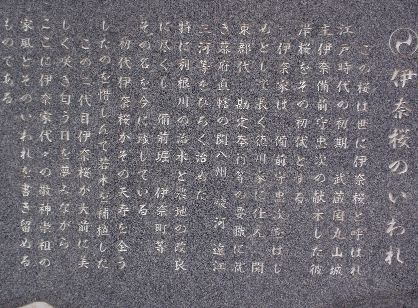 伊奈桜のいわれ
この桜は世に伊奈桜と呼ばれ
江戸時代の初期 武蔵国丸山城
主伊奈備前守忠次の献木した彼
岸桜をその初代とする
伊奈家は 備前守忠次をはじ
めとして長く徳川家に仕え 関
東郡代 勘定奉行等の要職に就
き幕府直轄の関八州 駿河 遠江
三河等をひろく治めた
特に利根川の治水と農地の改良
に尽くし 備前堀 伊奈町等
その名を今に残している
初代伊奈桜がその天寿を全う
したのを惜しんで若木を補植した
この二代目伊奈桜が大前に美
しく咲き匂う日を夢みながら
ここに伊奈家代々の敬神崇祖の
家風とそのいわれを書き留める
ものである